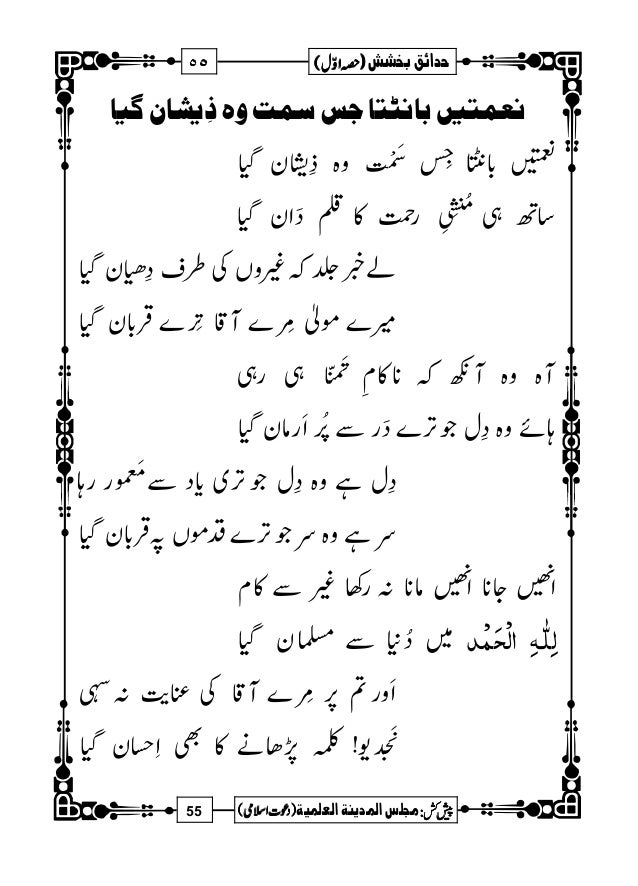 حدائق بخشش (حصہ اوّل)
۵۵
نعمتیں بانٹتا جس سمت وہ ذِیشان گیا
نعمتیں بانٹتا جِس سَمْت وہ ذِیشان گیا
ساتھ ہی مُنشیِ رحمت کا قلم دَان گیا
لے خبر جلد کہ غیروں کی طرف دِھیان گیا
میرے مولیٰ مِرے آقا تِرے قربان گیا
آہ وہ آنکھ کہ ناکامِ تَمنّا ہی رہی
ہائے وہ دِل جو ترے دَر سے پُر اَرمان گیا
دِل ہے وہ دِل جو تری یاد سے مَعمور رہا
سر ہے وہ سر جو ترے قدموں پہ قربان گیا
انھیں جانا انھیں مانا نہ رکھا غیر سے کام
لِلّٰہِ الْحَمْد میں دُنیا سے مسلمان گیا
اَور تم پر مِرے آقا کی عنایت نہ سہی
نَجدیو! کلمہ پڑھانے کا بھی اِحسان گیا
پیش کش: مجلس المدینة العلمیة (دعوت اسلامی)
55